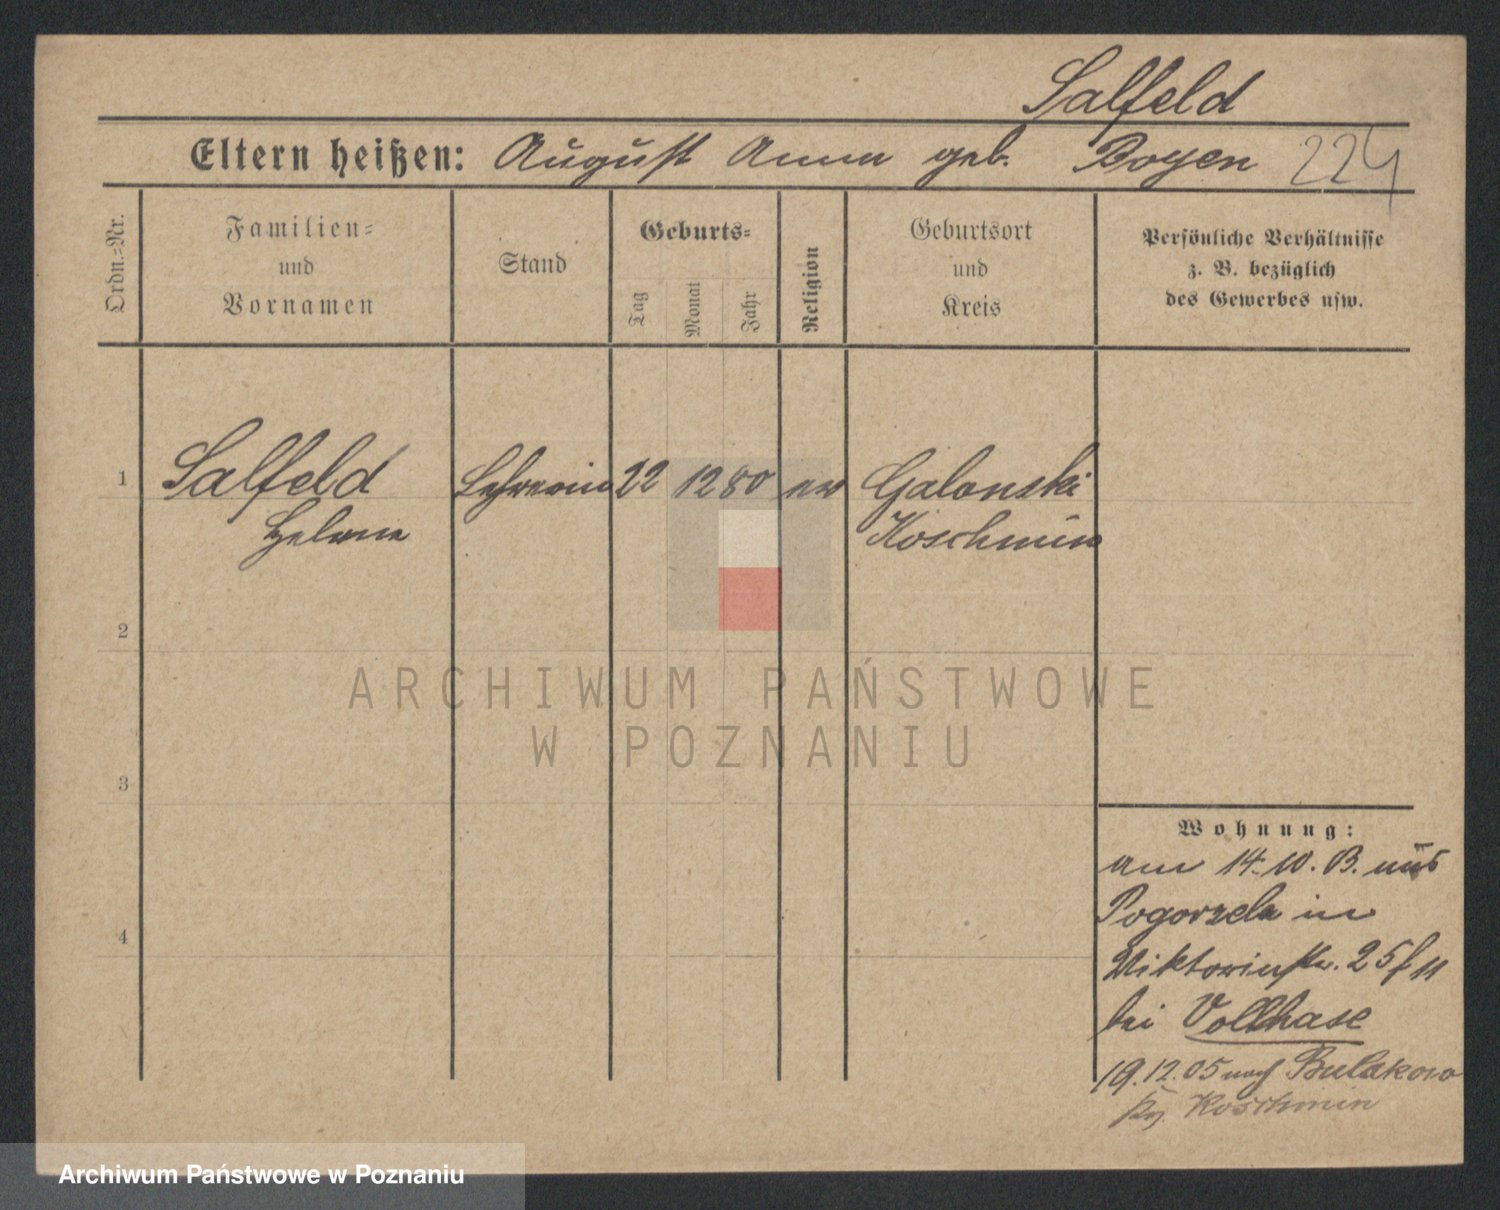 Salfeld
Eltern heißen: August Anna geb. Boyen 224
Ordn.-Nr.
Familien-
und
Vornamen
Stand
Geburts-
Tag
Monat
Jahr
Religion
Geburtsort
und
Kreis
Persönliche Verhältnisse
z. B. bezüglich
des Gewerbes usw.
1 Salfeld Lehrerin 22 12 80 ev Galonski
Helene Koschmin
2
3
4
ARCHIWUM PAŃSTWOWE
W POZNANIU
Wohnung:
am 14. 10. aus
Pogorzela in
Viktoriastr. 25 II
bei Vollhase
19.12.05 nach Bulakowo
Koschmin
Archiwum Państwowe w Poznaniu